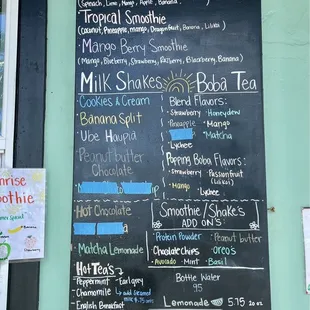 (Spinach, Lime, Mango, Apple, Banana)
Tropical Smoothie
(Coconut, Pineapple, Mango, Dragonfruit, Banana, Lilikoi)
Mango Berry Smoothie
(Mango, Blueberry, Strawberry, Razberry, Blackberry, Banana)
Milk Shakes
Cookies & Cream
Banana Split
Ube Haupia
Peanut butter
Chocolate
Hot Chocolate
Matcha Lemonade
Hot Tea's
Peppermint · Earl grey
Chamomile
English Breakfast
Boba Tea
Blend Flavors:
· Strawberry · Honeydew
· Pineapple · Mango
· Matcha
· Lychee
Popping Boba Flavors:
· Strawberry · Passionfruit
(Lilikoi)
· Mango
· Lychee
Smoothie/Shake's
ADD ON'S
Protein Powder · Peanut butter
Chocolate Chips · Oreo's
· Avocado · Mint · Basil
Bottle Water
95
Lemonade 5.75 20 oz
nrise
oothie